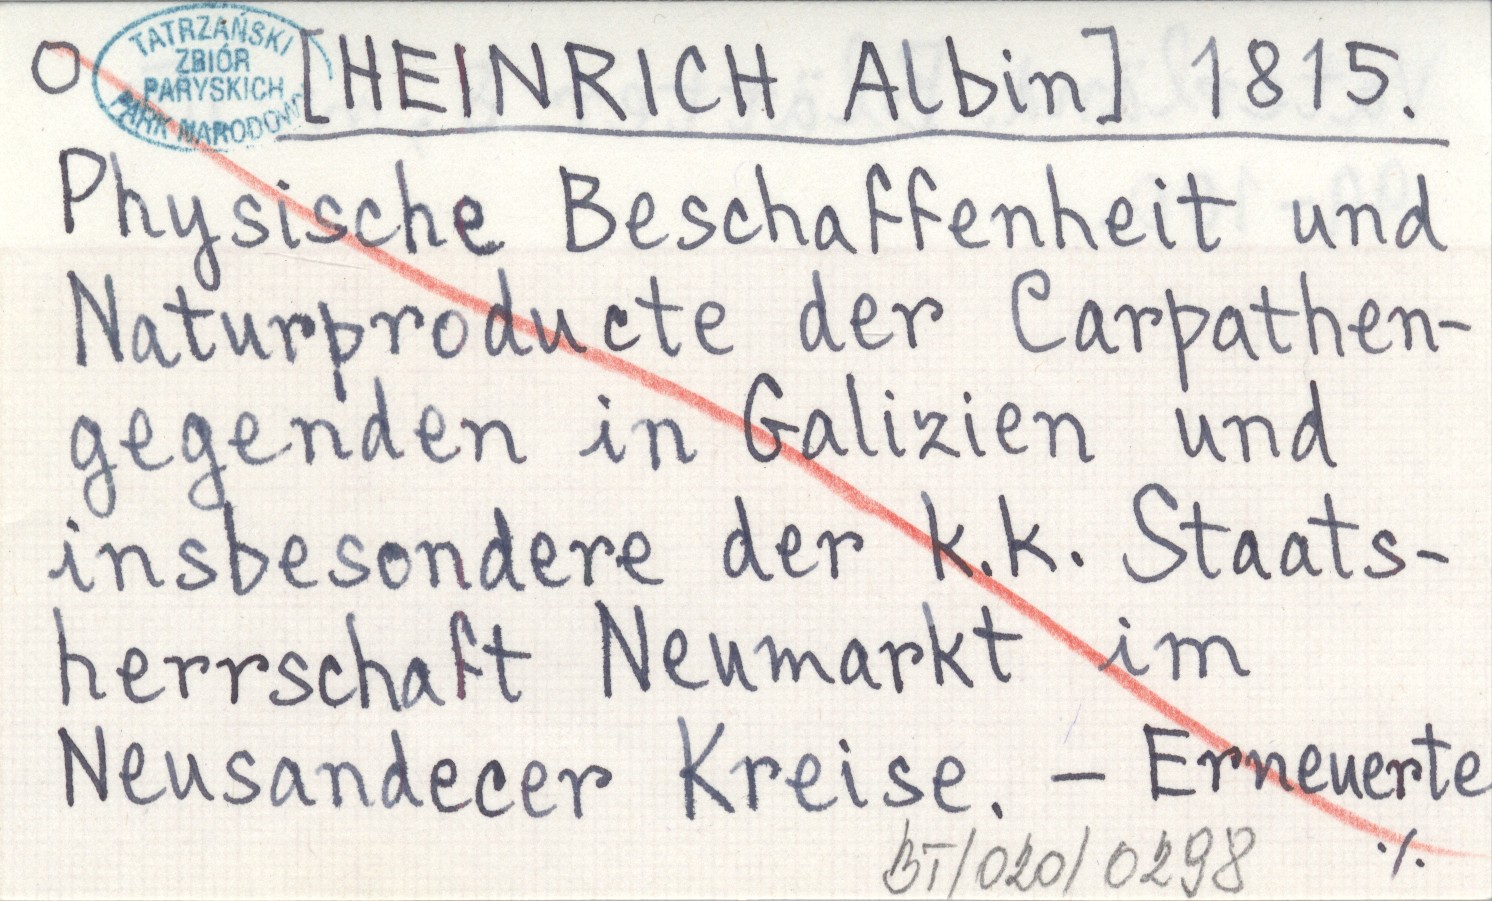 O
TATRZAŃSKI
ZBIÓR
PARYSKICH
PARK NARODOW
[HEINRICH Albin] 1815.
Physische Beschaffenheit und
Naturproducte der Carpathen-
gegenden in Galizien und
insbesondere der k.k. Staats-
herrschaft Neumarkt im
Neusandecer Kreise. – Erneuerte
./.
BT/020/0298